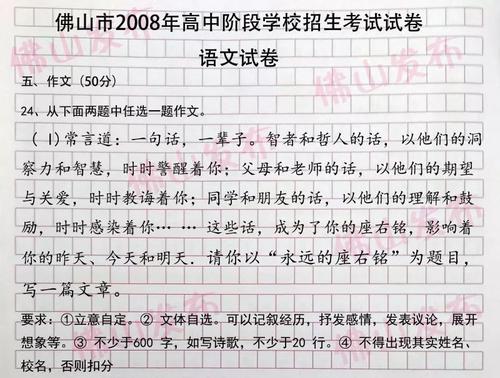 佛山市2008年高中阶段学校招生考试试卷
语文试卷
五、作文(50分)
24、从下面两题中任选一题作文。
(1)常言道：一句话，一辈子。智者和哲人的话，以他们的洞
察力和智慧，时时警醒着你；父母和老师的话，以他们的期望
与关爱，时时教诲着你；同学和朋友的话，以他们的理解和鼓
励，时时感染着你⋯ ⋯ 这些话，成为了你的座右铭，影响着
你的昨天、今天和明天．请你以“永远的座右铭”为题目，
写一篇文章。
要求：①立意自定。② 文体自选。可以记叙经历，抒发感情，发表议论，展开
想象等。③ 不少于600 字，如写诗歌，不少于20 行。④ 不得出现其实姓名、
校名，否则扣分
佛山发布
佛山发布
佛山发布
佛山发布
佛山发布
佛山发布